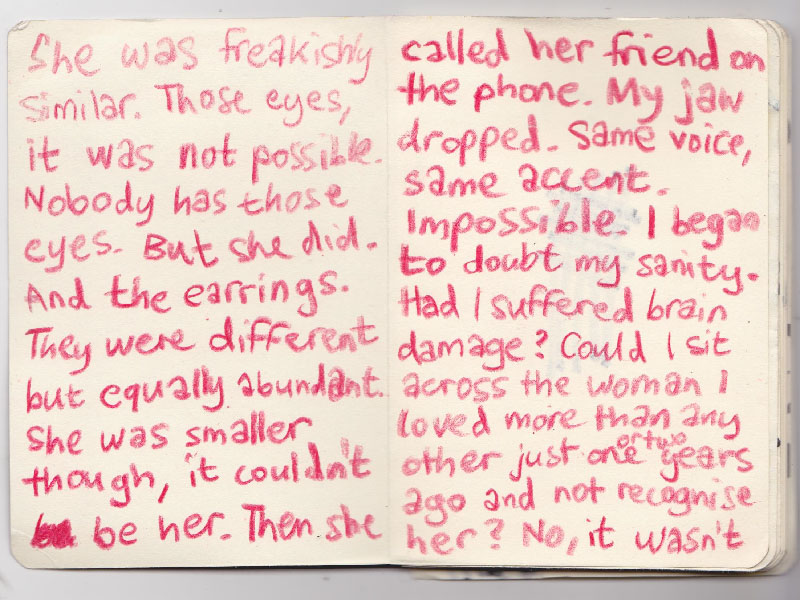 She was freakishly
similar. Those eyes,
it was not possible.
Nobody has those
eyes. But she did.
And the earrings.
They were different
but equally abundant.
She was smaller
though, it couldn't
be her. Then she
called her friend on
the phone. My jaw
dropped. Same voice,
same accent.
Impossible. I began
to doubt my sanity.
Had I suffered brain
damage? Could I sit
across the woman I
loved more than any
or two
other just one years
ago and not recognise
her? No, it wasn't